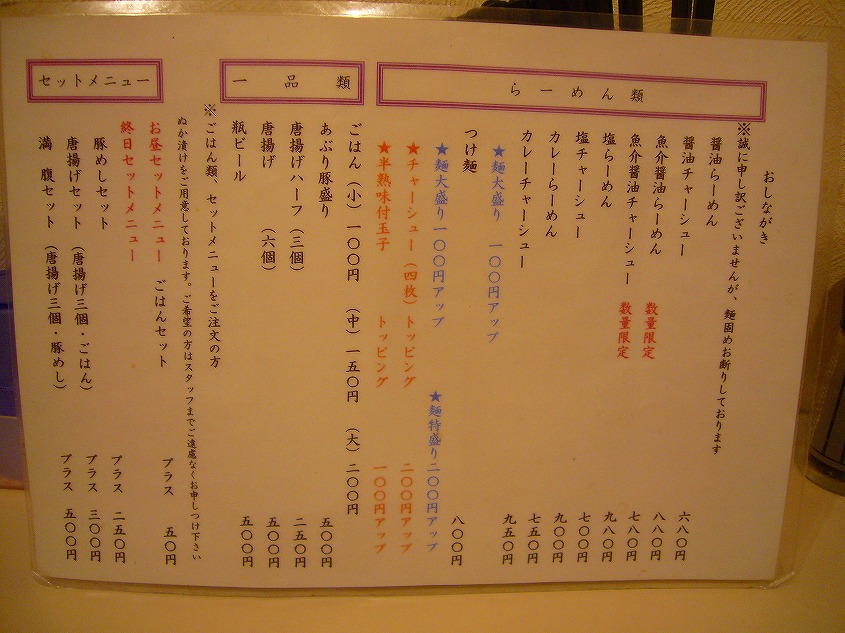 おしながき
らーめん類
※誠に申し訳ございませんが、麺固めお断りしております
醤油らーめん 六八〇円
醤油チャーシュー 八八〇円
魚介醤油らーめん 数量限定 七八〇円
魚介醤油チャーシュー 数量限定 九八〇円
塩らーめん 七〇〇円
塩チャーシュー 九〇〇円
カレーらーめん 七五〇円
カレーチャーシュー 九五〇円
★麺大盛り 一〇〇円アップ
つけ麺 八〇〇円
★麺大盛り一〇〇円アップ ★麺特盛り二〇〇円アップ
★チャーシュー(四枚)トッピング 二〇〇円アップ
★半熟味付玉子 トッピング 一〇〇円アップ
一品類
ごはん(小)一〇〇円 (中)一五〇円 (大)二〇〇円
あぶり豚盛り 五〇〇円
唐揚げハーフ(三個) 二五〇円
唐揚げ (六個) 五〇〇円
瓶ビール 五〇〇円
※ごはん類、セットメニューをご注文の方
ぬか漬けをご用意しております。ご希望の方はスタッフまでご遠慮なくお申しつけ下さい
セットメニュー
お昼セットメニュー ごはんセット プラス 五〇円
終日セットメニュー
豚めしセット プラス 二五〇円
唐揚げセット(唐揚げ三個・ごはん) プラス 三〇〇円
満 腹セット(唐揚げ三個・豚めし) プラス 五〇〇円